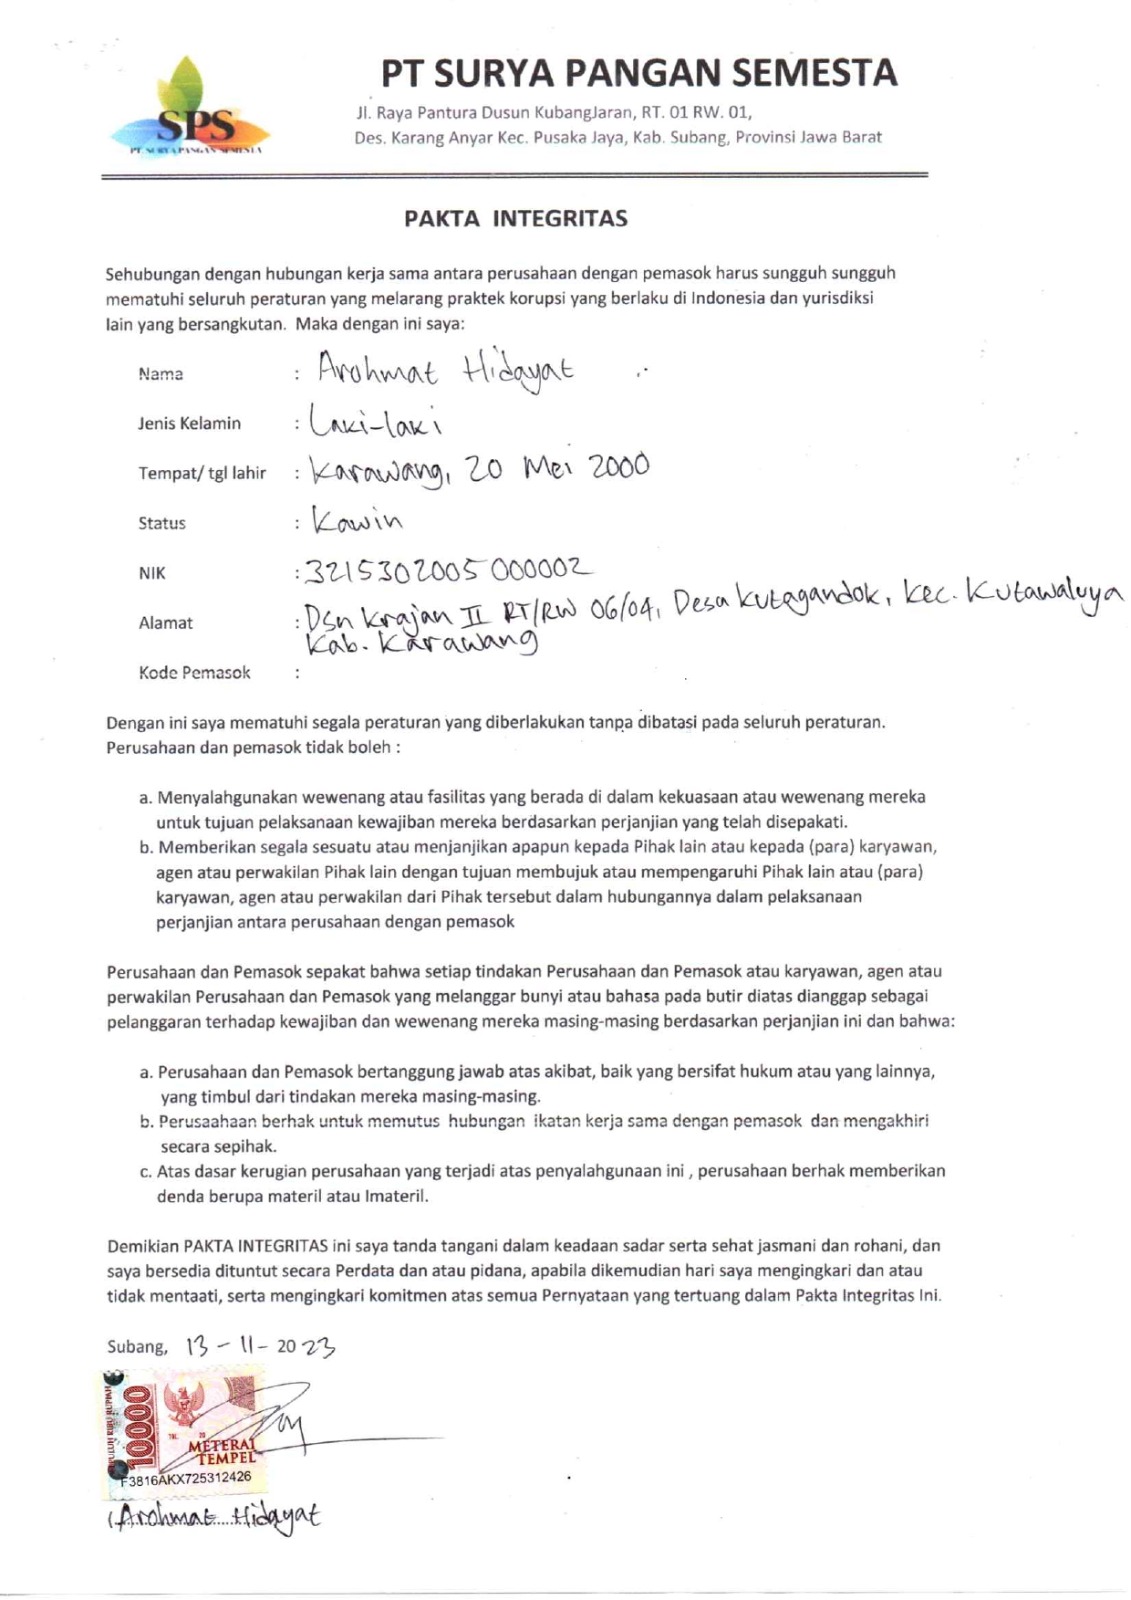 SPS
PT SURYA PANGAN SEMESTA
PT SURYA PANGAN SEMESTA
Jl. Raya Pantura Dusun KubangJaran, RT. 01 RW. 01,
Des. Karang Anyar Kec. Pusaka Jaya, Kab. Subang, Provinsi Jawa Barat
PAKTA INTEGRITAS
Sehubungan dengan hubungan kerja sama antara perusahaan dengan pemasok harus sungguh sungguh
mematuhi seluruh peraturan yang melarang praktek korupsi yang berlaku di Indonesia dan yurisdiksi
lain yang bersangkutan. Maka dengan ini saya:
Nama : Arohmat Hidayat
Jenis Kelamin : Laki-laki
Tempat/ tgl lahir : Karawang, 20 Mei 2000
Status : Kawin
NIK : 3215302005000002
Alamat : Dsn Krajan II RT/RW 06/04, Desa Kutagandok, Kec. Kutawaluya
Kab. Karawang
Kode Pemasok :
Dengan ini saya mematuhi segala peraturan yang diberlakukan tanpa dibatasi pada seluruh peraturan.
Perusahaan dan pemasok tidak boleh :
a. Menyalahgunakan wewenang atau fasilitas yang berada di dalam kekuasaan atau wewenang mereka
untuk tujuan pelaksanaan kewajiban mereka berdasarkan perjanjian yang telah disepakati.
b. Memberikan segala sesuatu atau menjanjikan apapun kepada Pihak lain atau kepada (para) karyawan,
agen atau perwakilan Pihak lain dengan tujuan membujuk atau mempengaruhi Pihak lain atau (para)
karyawan, agen atau perwakilan dari Pihak tersebut dalam hubungannya dalam pelaksanaan
perjanjian antara perusahaan dengan pemasok
Perusahaan dan Pemasok sepakat bahwa setiap tindakan Perusahaan dan Pemasok atau karyawan, agen atau
perwakilan Perusahaan dan Pemasok yang melanggar bunyi atau bahasa pada butir diatas dianggap sebagai
pelanggaran terhadap kewajiban dan wewenang mereka masing-masing berdasarkan perjanjian ini dan bahwa:
a. Perusahaan dan Pemasok bertanggung jawab atas akibat, baik yang bersifat hukum atau yang lainnya,
yang timbul dari tindakan mereka masing-masing.
b. Perusaahaan berhak untuk memutus hubungan ikatan kerja sama dengan pemasok dan mengakhiri
secara sepihak.
c. Atas dasar kerugian perusahaan yang terjadi atas penyalahgunaan ini , perusahaan berhak memberikan
denda berupa materil atau Imateril.
Demikian PAKTA INTEGRITAS ini saya tanda tangani dalam keadaan sadar serta sehat jasmani dan rohani, dan
saya bersedia dituntut secara Perdata dan atau pidana, apabila dikemudian hari saya mengingkari dan atau
tidak mentaati, serta mengingkari komitmen atas semua Pernyataan yang tertuang dalam Pakta Integritas Ini.
Subang, 13 - 11 - 2023
10000
METERAI
TEMPEL
F3816AKX725312426
(Arohmat Hidayat